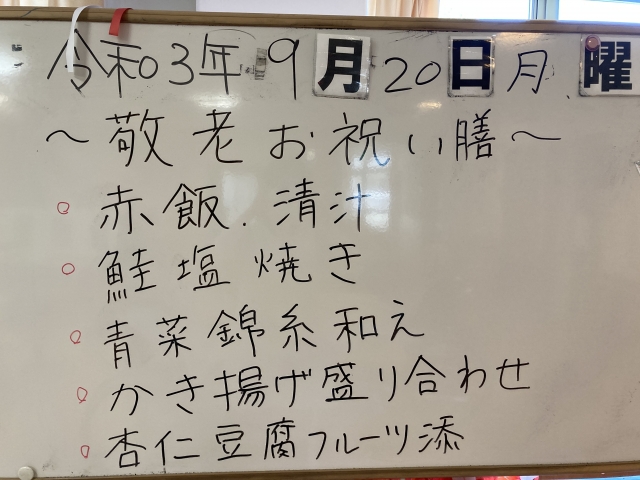 令和3年9月20日月曜
～敬老お祝い膳～
○赤飯.清汁
○鮭塩焼き
○青菜錦糸和え
○かき揚げ盛り合わせ
○杏仁豆腐フルーツ添